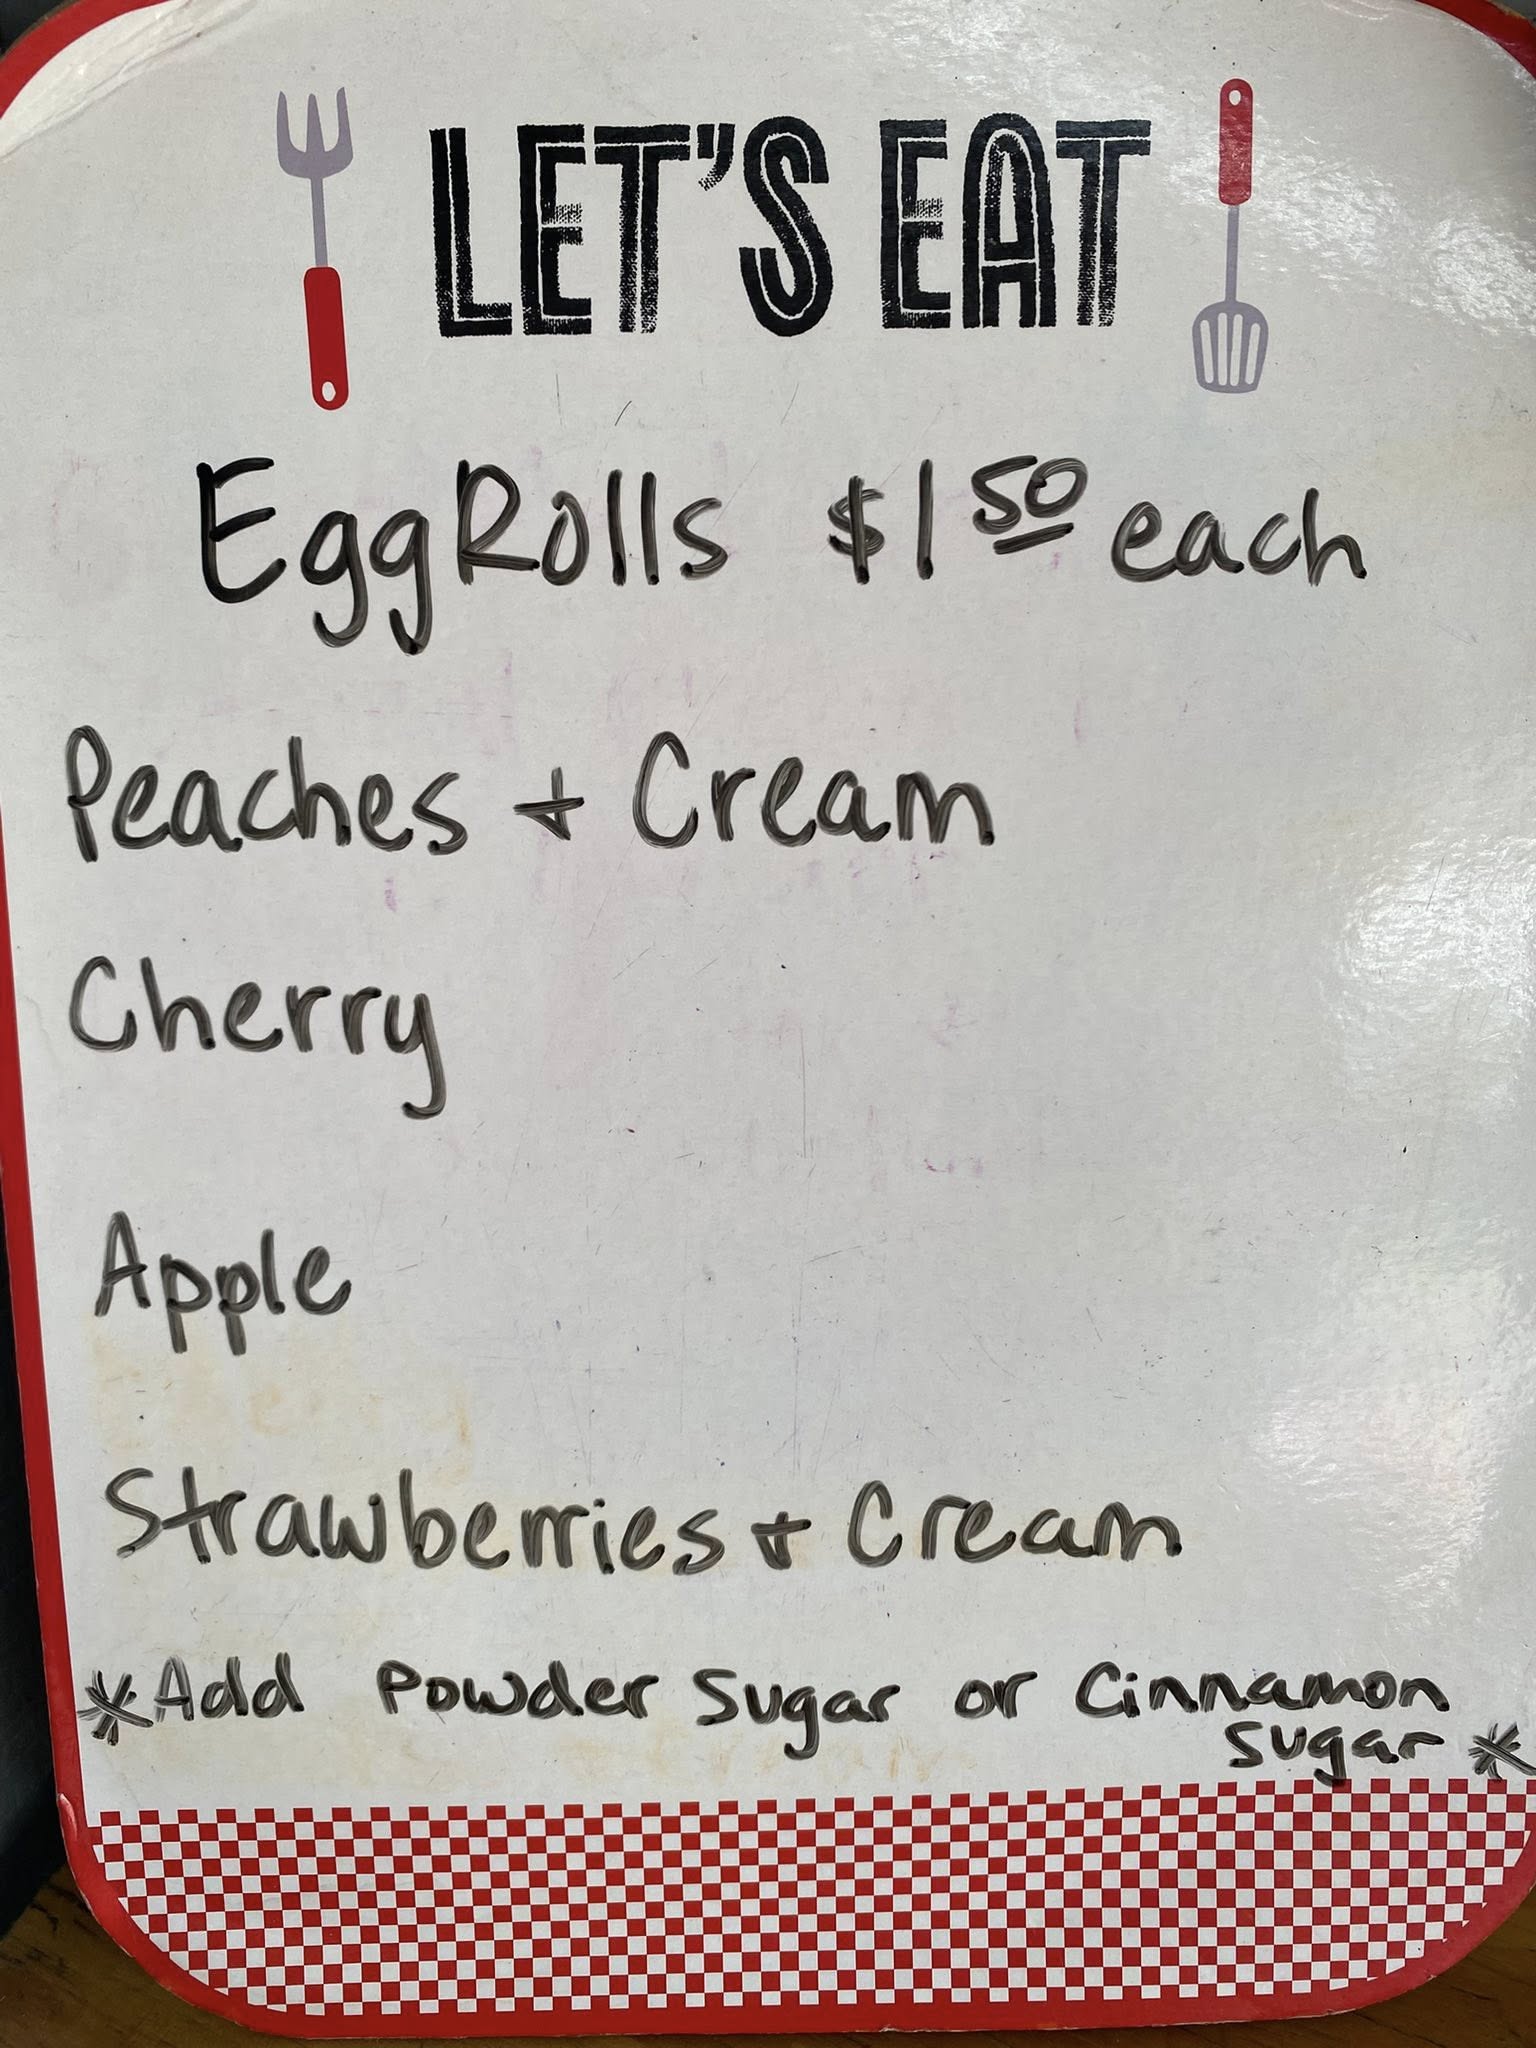 LET'S EAT
EggRolls $1 50 each
Peaches + Cream
Cherry
Apple
Strawberries + Cream
*Add Powder Sugar or Cinnamon
Sugar *